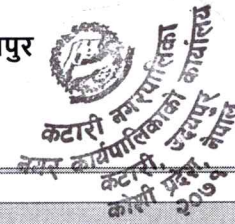 पुर
कटारी नगरपालिका
नगर कार्यपालिकाको कार्यालय
कटारी, उदयपुर
कोशी प्रदेश, नेपाल
२०७१